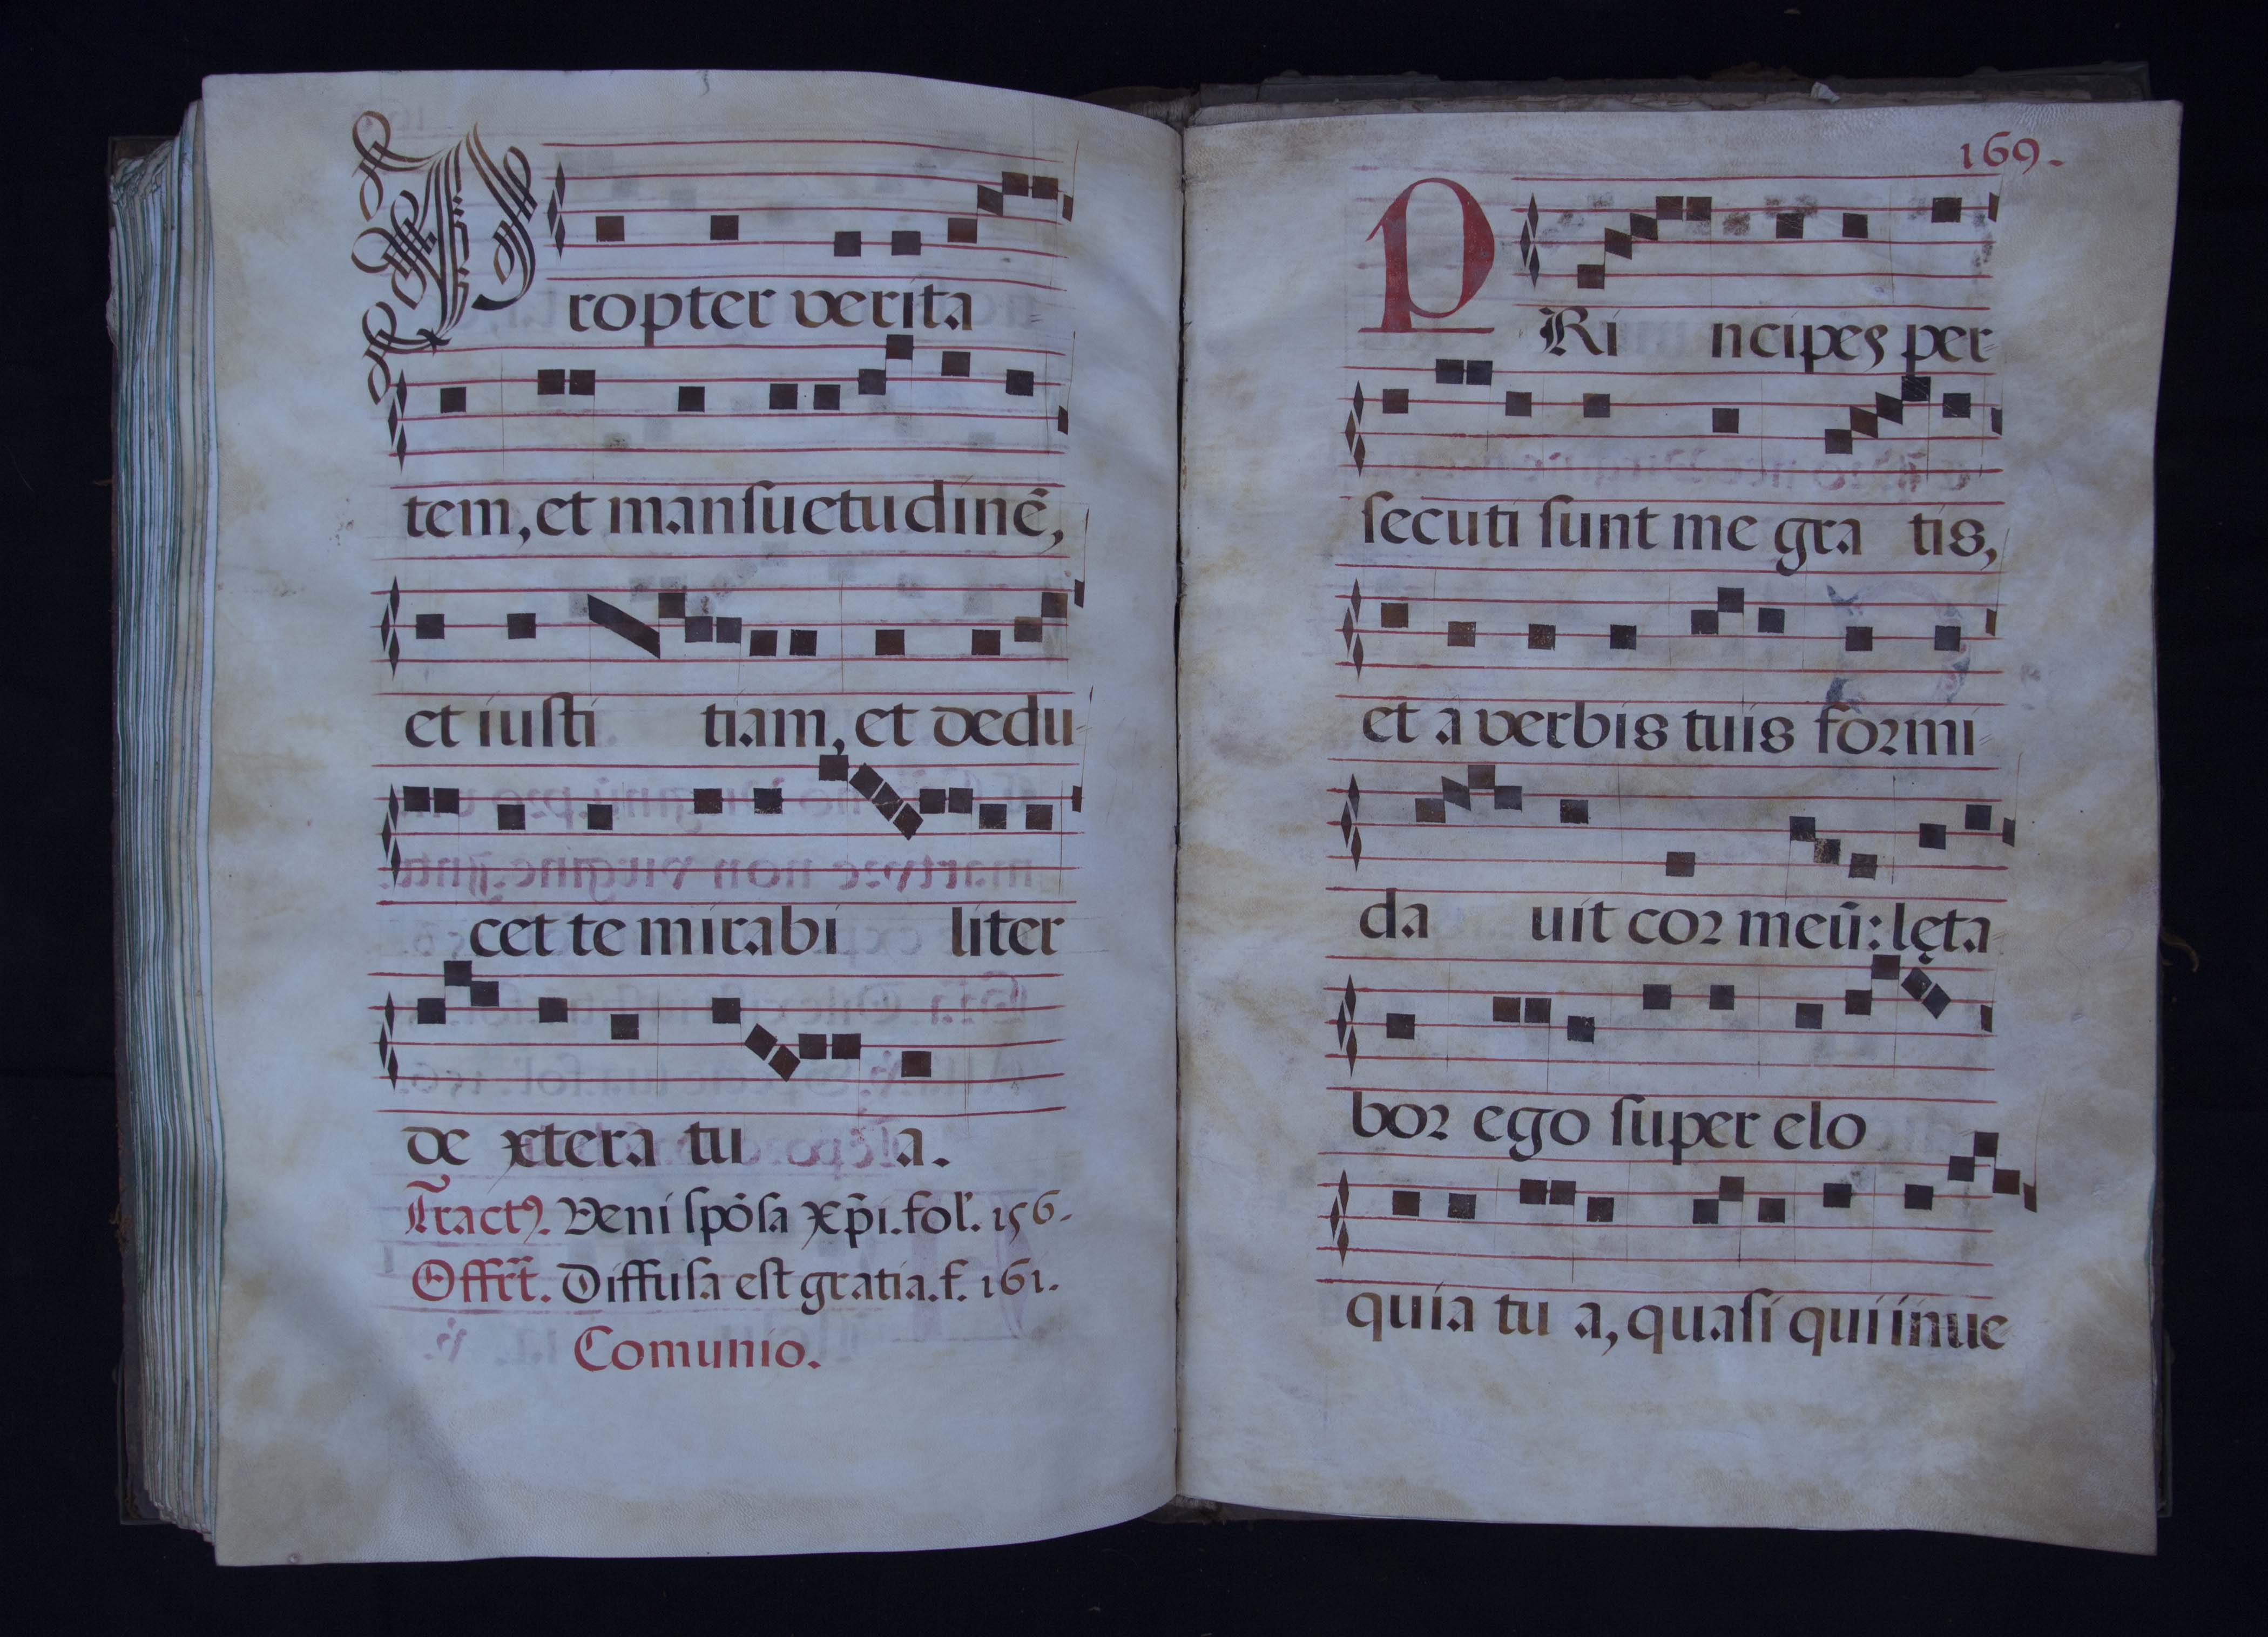 Propter verita
tem, et manſuetudinē,
et iuſti tiam, et dedu-
cet te mirabi liter
de xtera tu a.
Tractꝰ. Veni ſpōſa xp̄i. fol. 156.
Offrt̄. Diffuſa eſt gratia. f. 161.
Comunio.
169.
PRi ncipes per-
ſecuti ſunt me gra tis,
et a verbis tuis foꝛmi-
da uit coꝛ meū: lęta-
boꝛ ego ſuper elo
quia tu a, quaſi qui inue